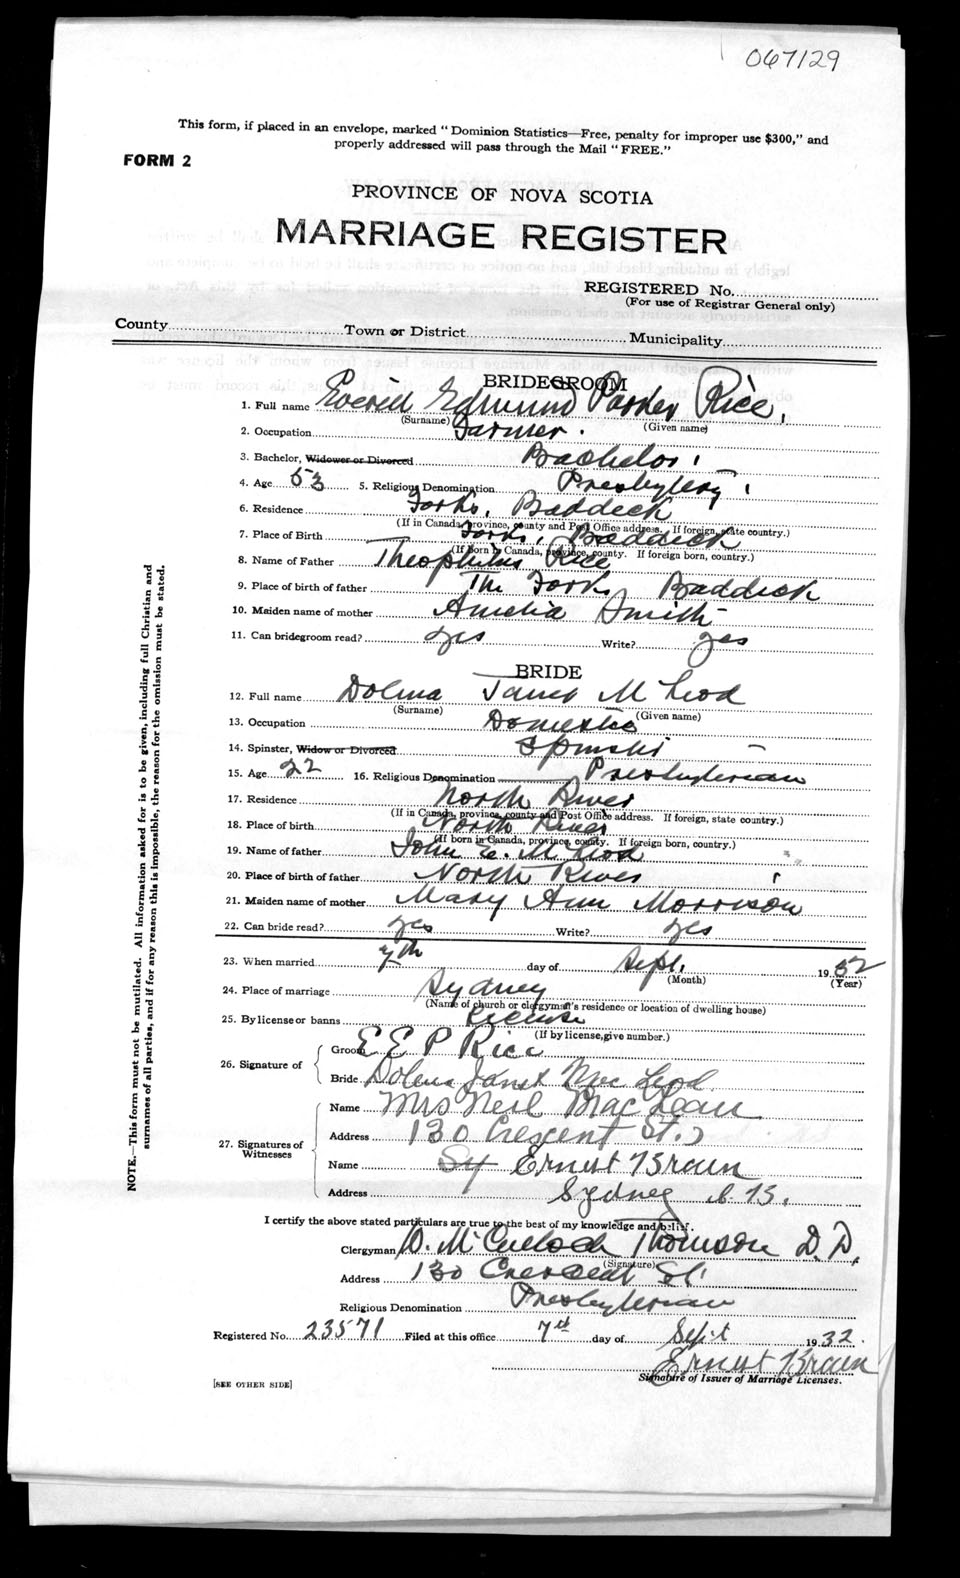 067129
This form, if placed in an envelope, marked "Dominion Statistics—Free, penalty for improper use $300," and
properly addressed will pass through the Mail "FREE."
FORM 2
PROVINCE OF NOVA SCOTIA
MARRIAGE REGISTER
REGISTERED No.
(For use of Registrar General only)
County Town or District Municipality
BRIDEGROOM
1. Full name Edmund Parker Rice,
(Surname) (Given name)
2. Occupation Farmer.
3. Bachelor, Widower or Divorced Bachelor
4. Age 53 5. Religious Denomination Presbytery
6. Residence Forks, Baddeck
(If in Canada, province, county and Post Office address. If foreign, state country.)
7. Place of Birth Forks, Baddeck
(If born in Canada, province, county. If foreign born, country.)
8. Name of Father Theophilus Rice
9. Place of birth of father The Forks Baddeck
10. Maiden name of mother Amelia Smith
11. Can bridegroom read? yes Write? yes
BRIDE
12. Full name Dolina Janet McLeod
(Surname) (Given name)
13. Occupation Domestic
14. Spinster, Widow or Divorced Spinster
15. Age 22 16. Religious Denomination Presbyterian
17. Residence North River
(If in Canada, province, county and Post Office address. If foreign, state country.)
18. Place of birth North River
(If born in Canada, province, county. If foreign born, country.)
19. Name of father John E. McLeod
20. Place of birth of father North River
21. Maiden name of mother Mary Ann Morrison
22. Can bride read? yes Write? yes
23. When married 7th day of Sept. 1932
(Month) (Year)
24. Place of marriage Sydney
(Name of church or clergyman's residence or location of dwelling house)
25. By license or banns License
(If by license, give number.)
26. Signature of Groom E E P Rice
Bride Dolena Janet MacLeod
27. Signatures of Witnesses Name Mrs Neil MacLean
Address 130 Crescent St.
Name Sy Ernest Braun
Address Sydney C. B.
I certify the above stated particulars are true to the best of my knowledge and belief.
Clergyman D. McCulloch Thomson D.D.
(Signature)
Address 130 Crescent St
Religious Denomination Presbyterian
Registered No. 23571 Filed at this office 7th day of Sept 1932.
Ernest Braun
Signature of Issuer of Marriage Licenses.
[SEE OTHER SIDE]
NOTE.—This form must not be mutilated. All information asked for is to be given, including full Christian and
surnames of all parties, and if for any reason this is impossible, the reason for the omission must be stated.